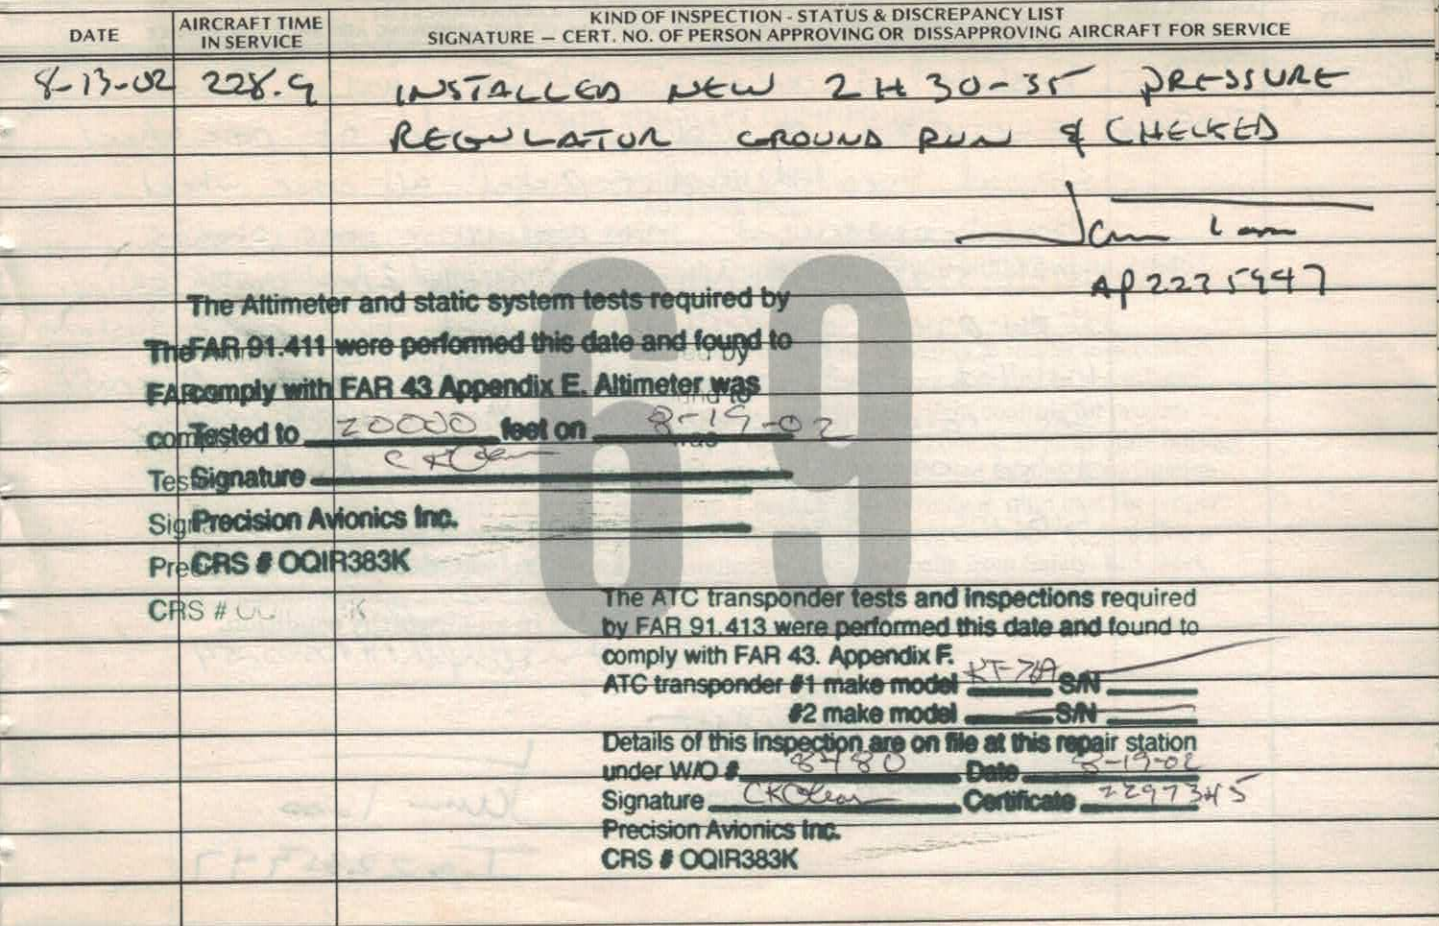 DATE
AIRCRAFT TIME
IN SERVICE
KIND OF INSPECTION - STATUS & DISCREPANCY LIST
SIGNATURE — CERT. NO. OF PERSON APPROVING OR DISSAPPROVING AIRCRAFT FOR SERVICE
8-13-02 228.9 INSTALLED NEW 2H30-35 PRESSURE
REGULATOR GROUND RUN & CHECKED
69
The Altimeter and static system tests required by
FAR 91.411 were performed this date and found to
comply with FAR 43 Appendix E. Altimeter was
Tested to 20000 feet on 8-19-02
Signature
Precision Avionics Inc.
CRS # OQIR383K
CRS #
The ATC transponder tests and inspections required
by FAR 91.413 were performed this date and found to
comply with FAR 43. Appendix F.
ATC transponder #1 make model S/N
#2 make model S/N
Details of this inspection are on file at this repair station
under W/O # 8480 Date 8-19-02
Signature Certificate
Precision Avionics Inc.
CRS # OQIR383K